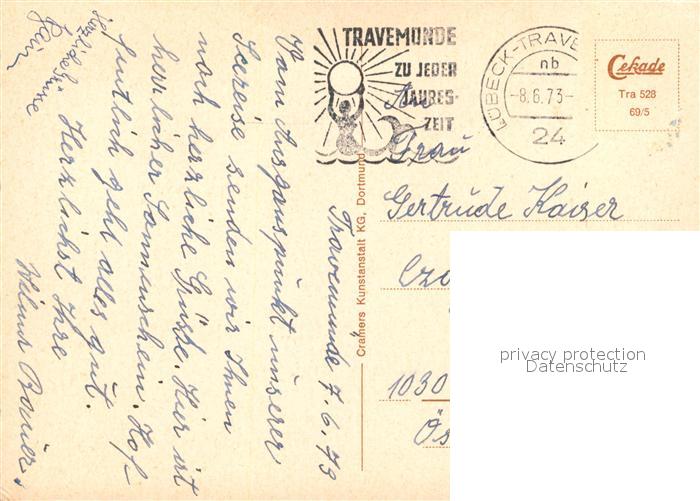 Travemünde 7.6.73
Vom Ausgangspunkt unserer
Seereise senden wir Ihnen
noch herzliche Grüße. Hier ist
herrlicher Sonnenschein. Hof
fentlich geht alles gut.
Herzlichst Ihre
Wilma Bauer.
Herzliche Grüße
TRAVEMÜNDE
ZU JEDER
JAHRES-
ZEIT
LÜBECK-TRAVE
nb
-8.6.73-
24
Cekade
Tra 528
69/5
Cramers Kunstanstalt KG, Dortmund
An
Frau
Gertrude Kaiser
Cz
1030
Ös
privacy protection
Datenschutz